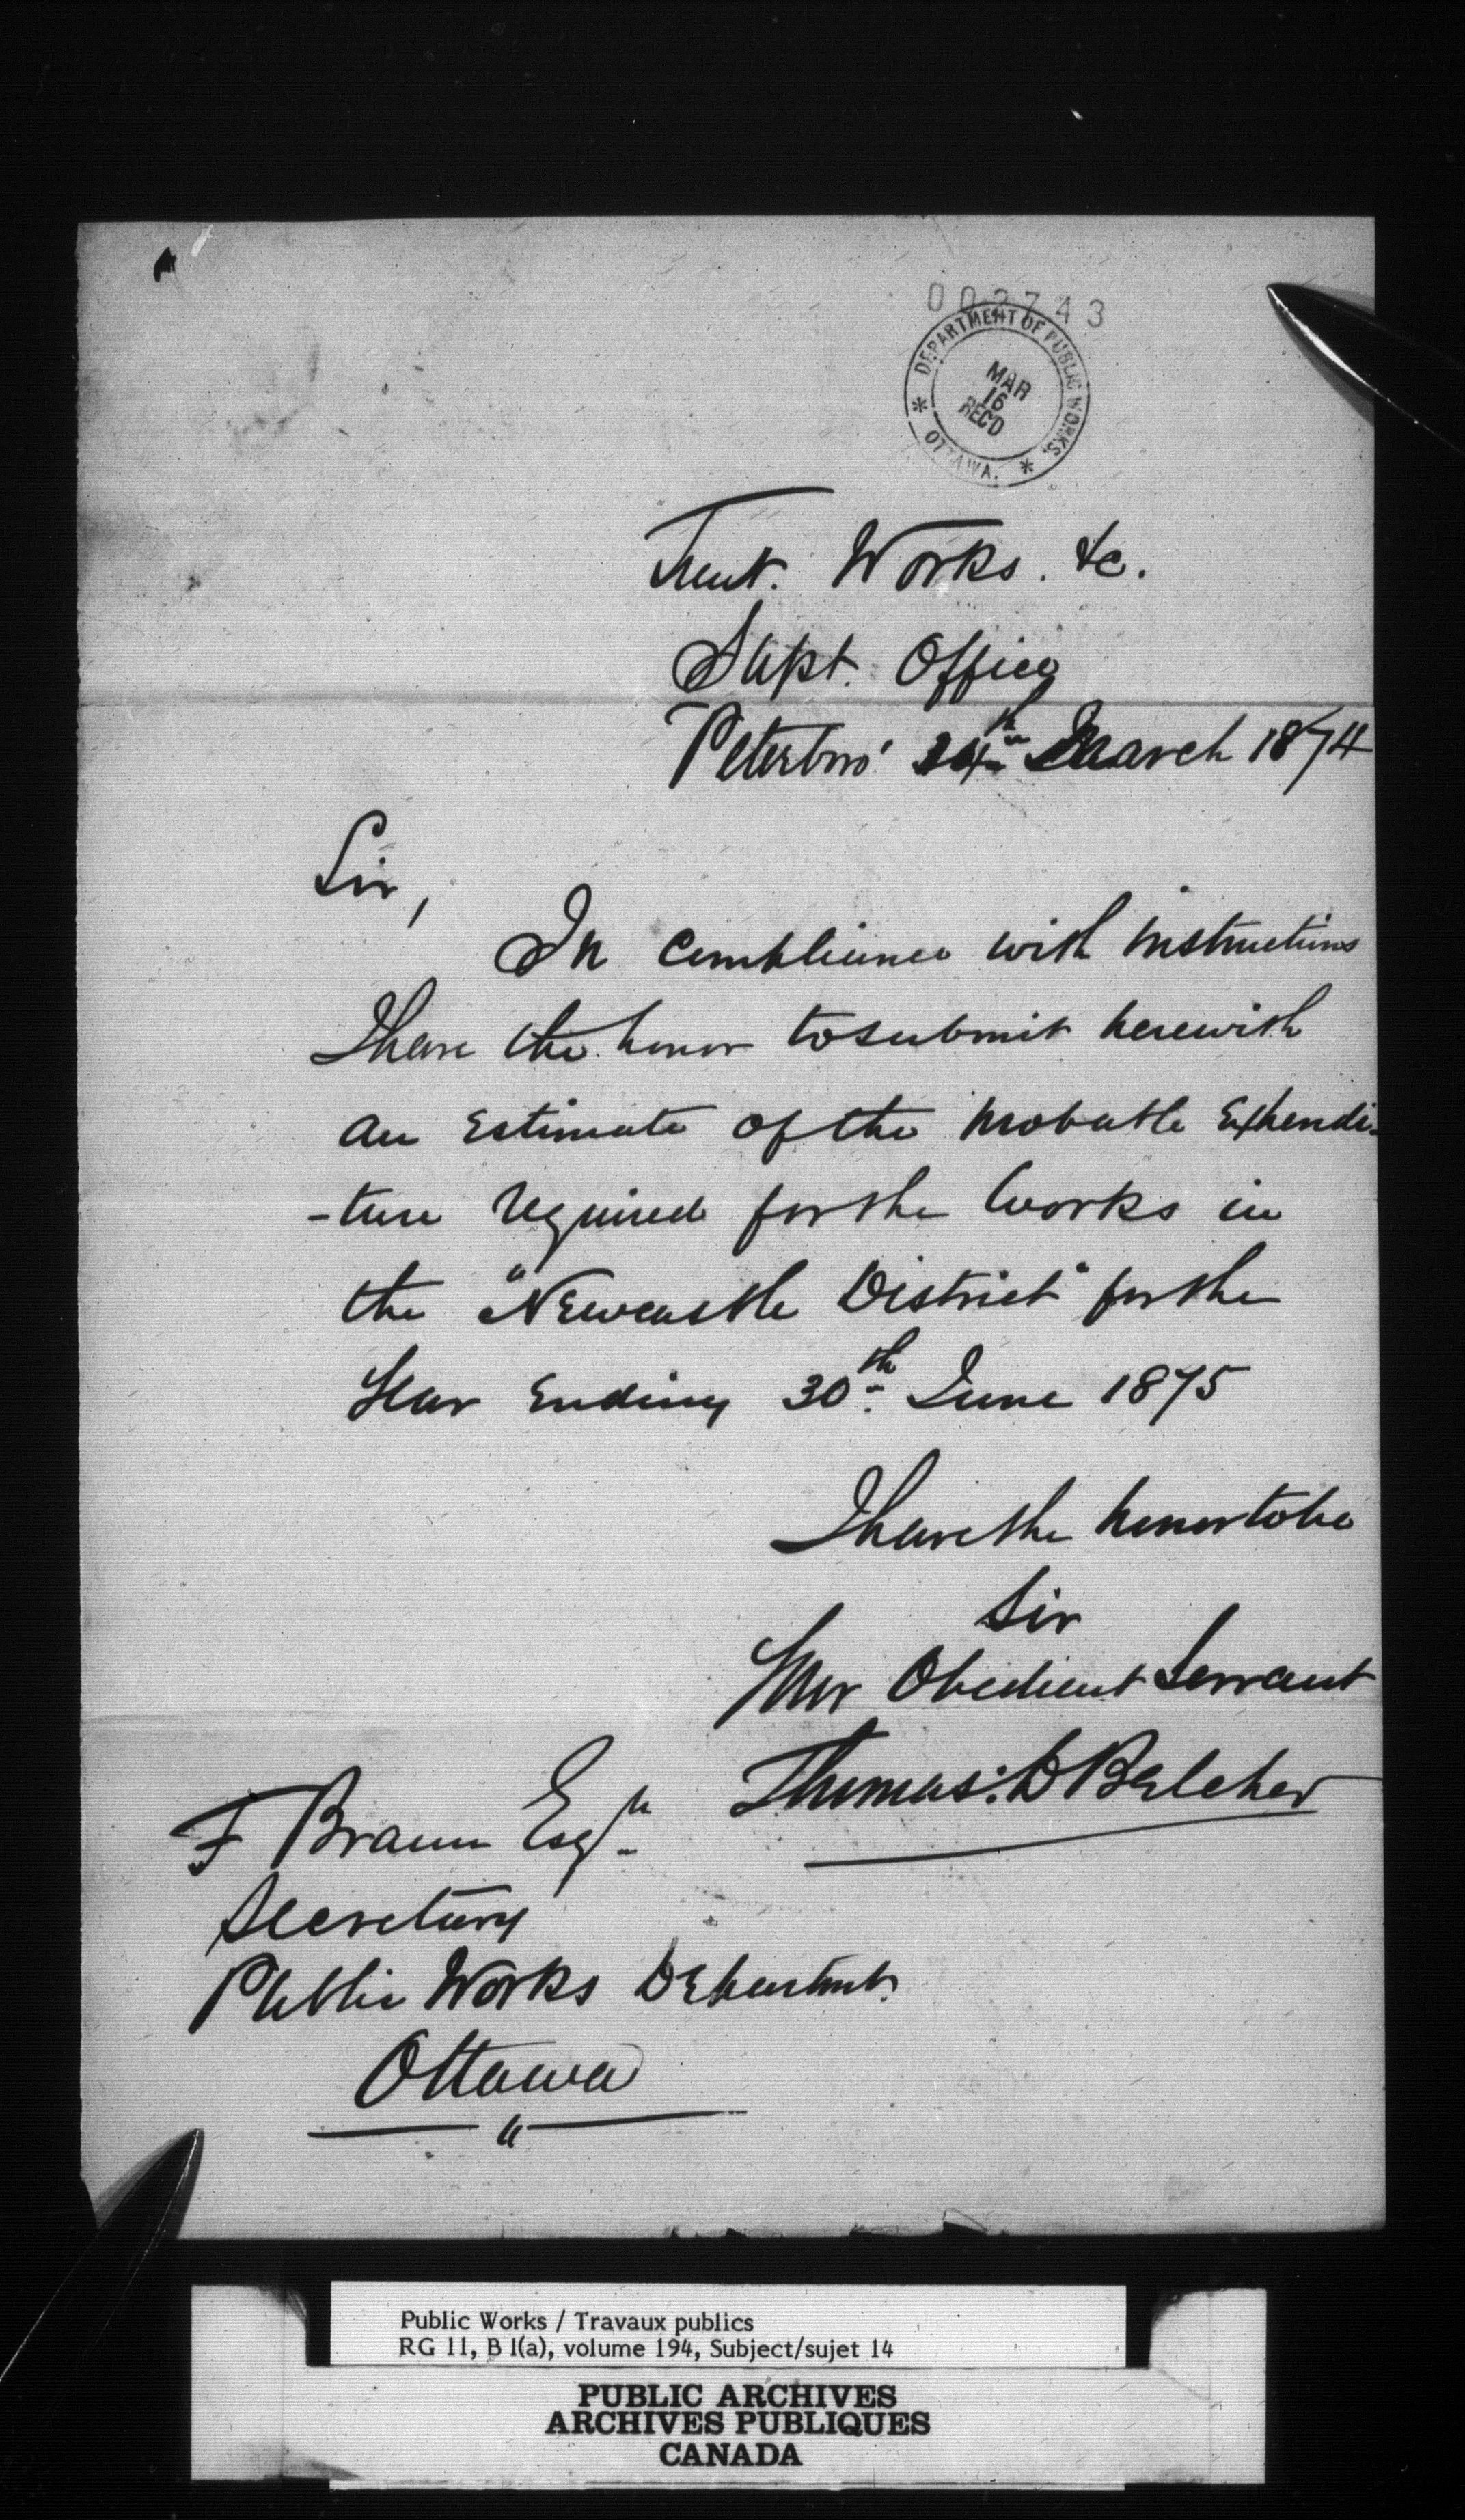 002743
DEPARTMENT OF PUBLIC WORKS.
MAR
16
REC'D
OTTAWA.
Trent. Works. &c.
Supt. Office
Peterboro' th March 1874
Sir,
In Compliance with instructions
I have the honor to submit herewith
an Estimate of the probable Expendi-
-ture required for the Works in
the "Newcastle District" for the
Year Ending 30th June 1875
I have the honor to be
Sir
Your Obedient Servant
Thomas: D Belcher
F Braun Esqr
Secretary
Public Works Departmt.
Ottawa
"
Public Works / Travaux publics
RG 11, B 1(a), volume 194, Subject/sujet 14
PUBLIC ARCHIVES
ARCHIVES PUBLIQUES
CANADA